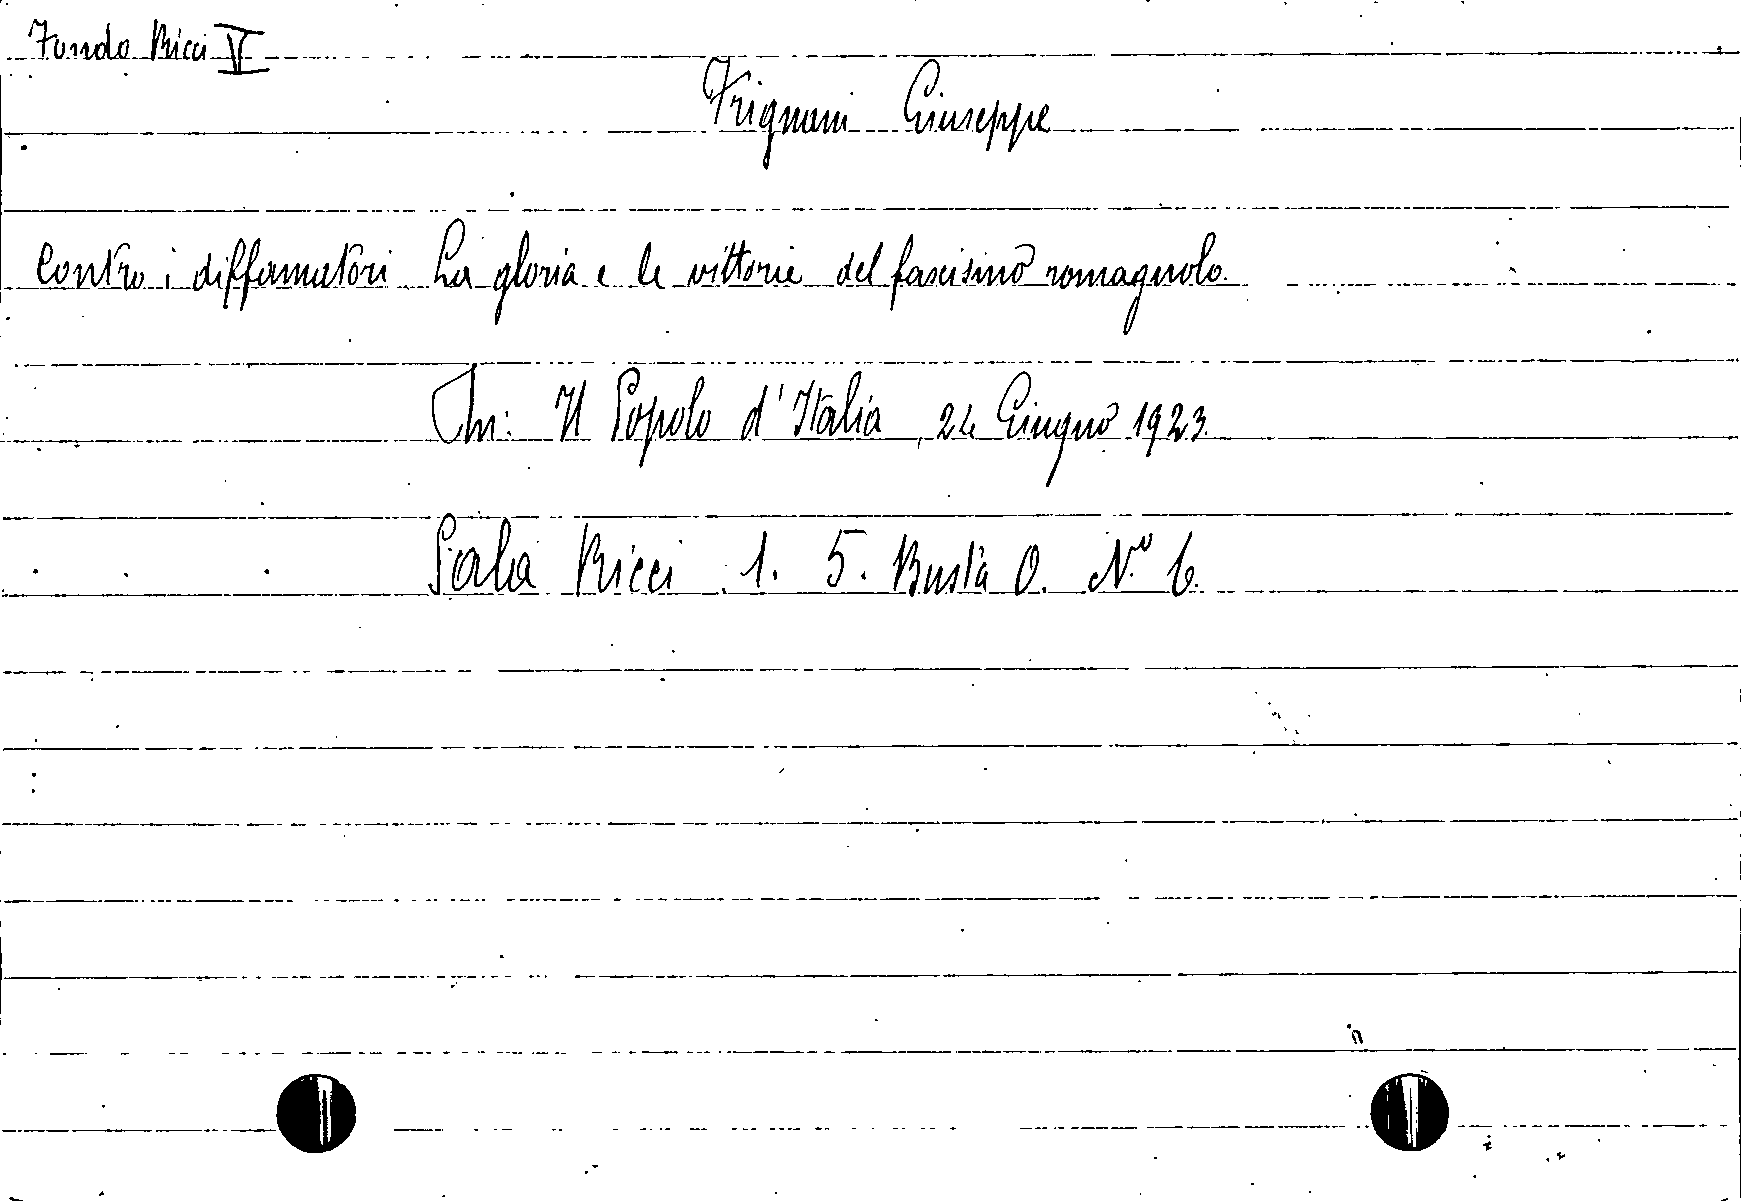 Fondo Ricci V
Frignani Giuseppe
Contro i diffamatori. La gloria e le vittorie del fascismo romagnolo.
In: Il Popolo d'Italia, 24 Giugno 1923.
Sala Ricci 1. 5. Busta O. N.° 6.